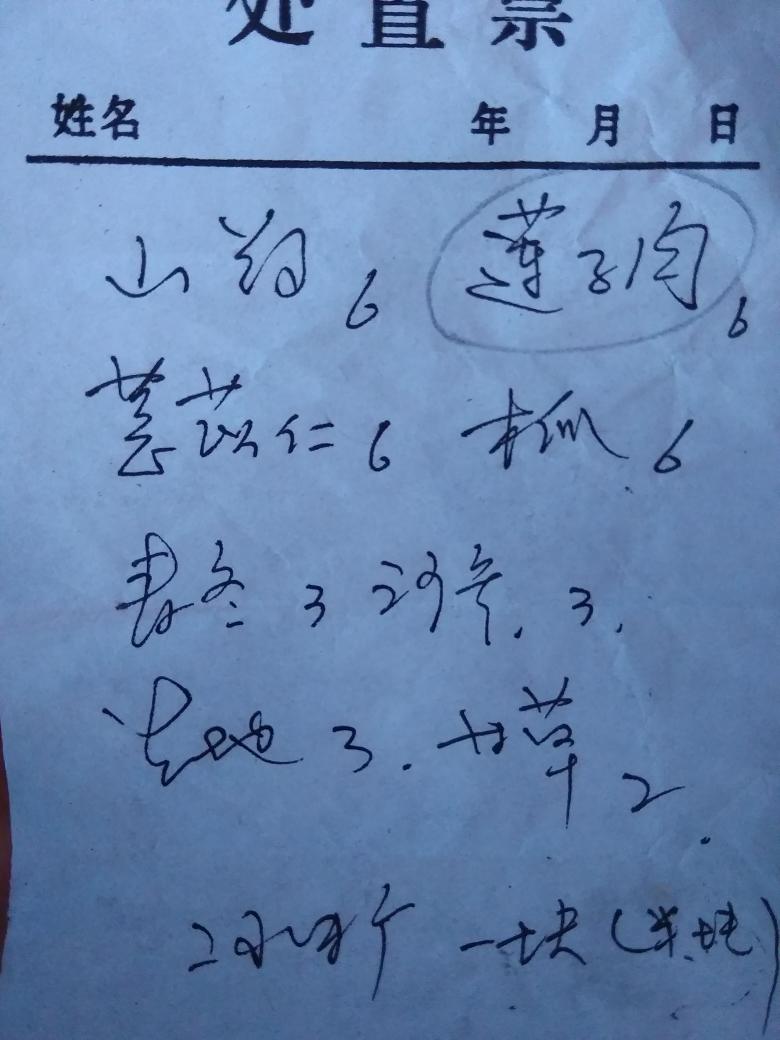 处置票
姓名 年 月 日
山药 6 莲子肉 6
薏苡仁 6 木瓜 6
麦冬 3 沙参. 3.
生地 3. 甘草 2.
一块(